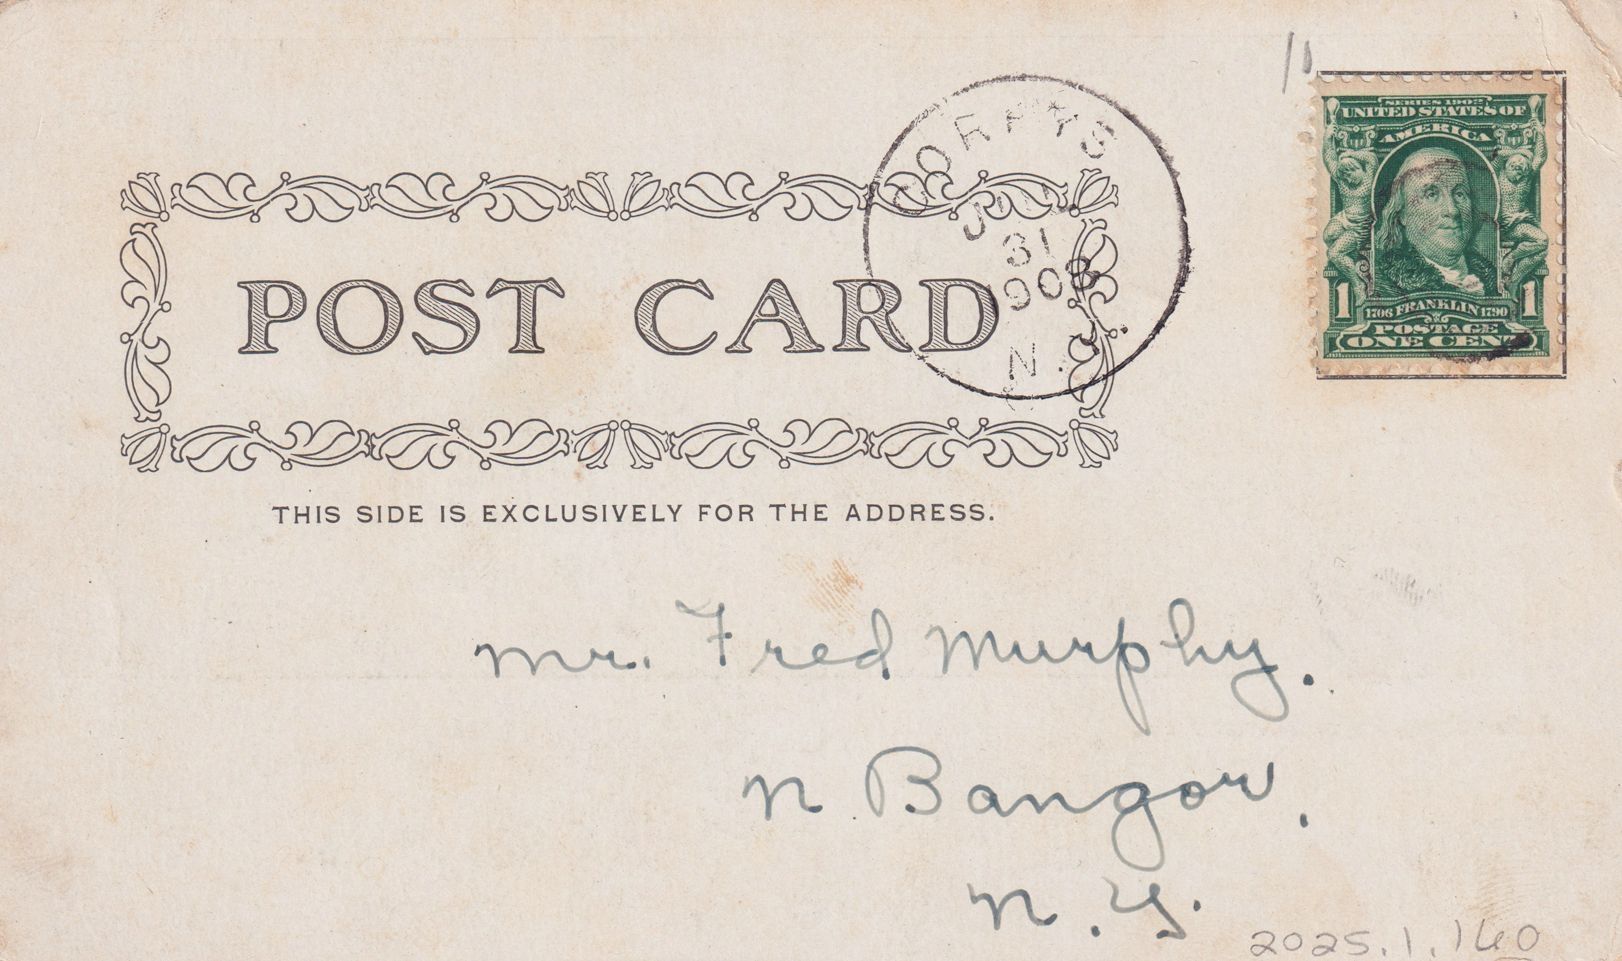 SERIES 1902
UNITED STATES OF
AMERICA
1 1706 FRANKLIN 1790 1
POSTAGE
ONE CENT
31
N.Y.
POST CARD
THIS SIDE IS EXCLUSIVELY FOR THE ADDRESS.
Mr. Fred Murphy.
N Bangor.
N.Y.
2025.1.160